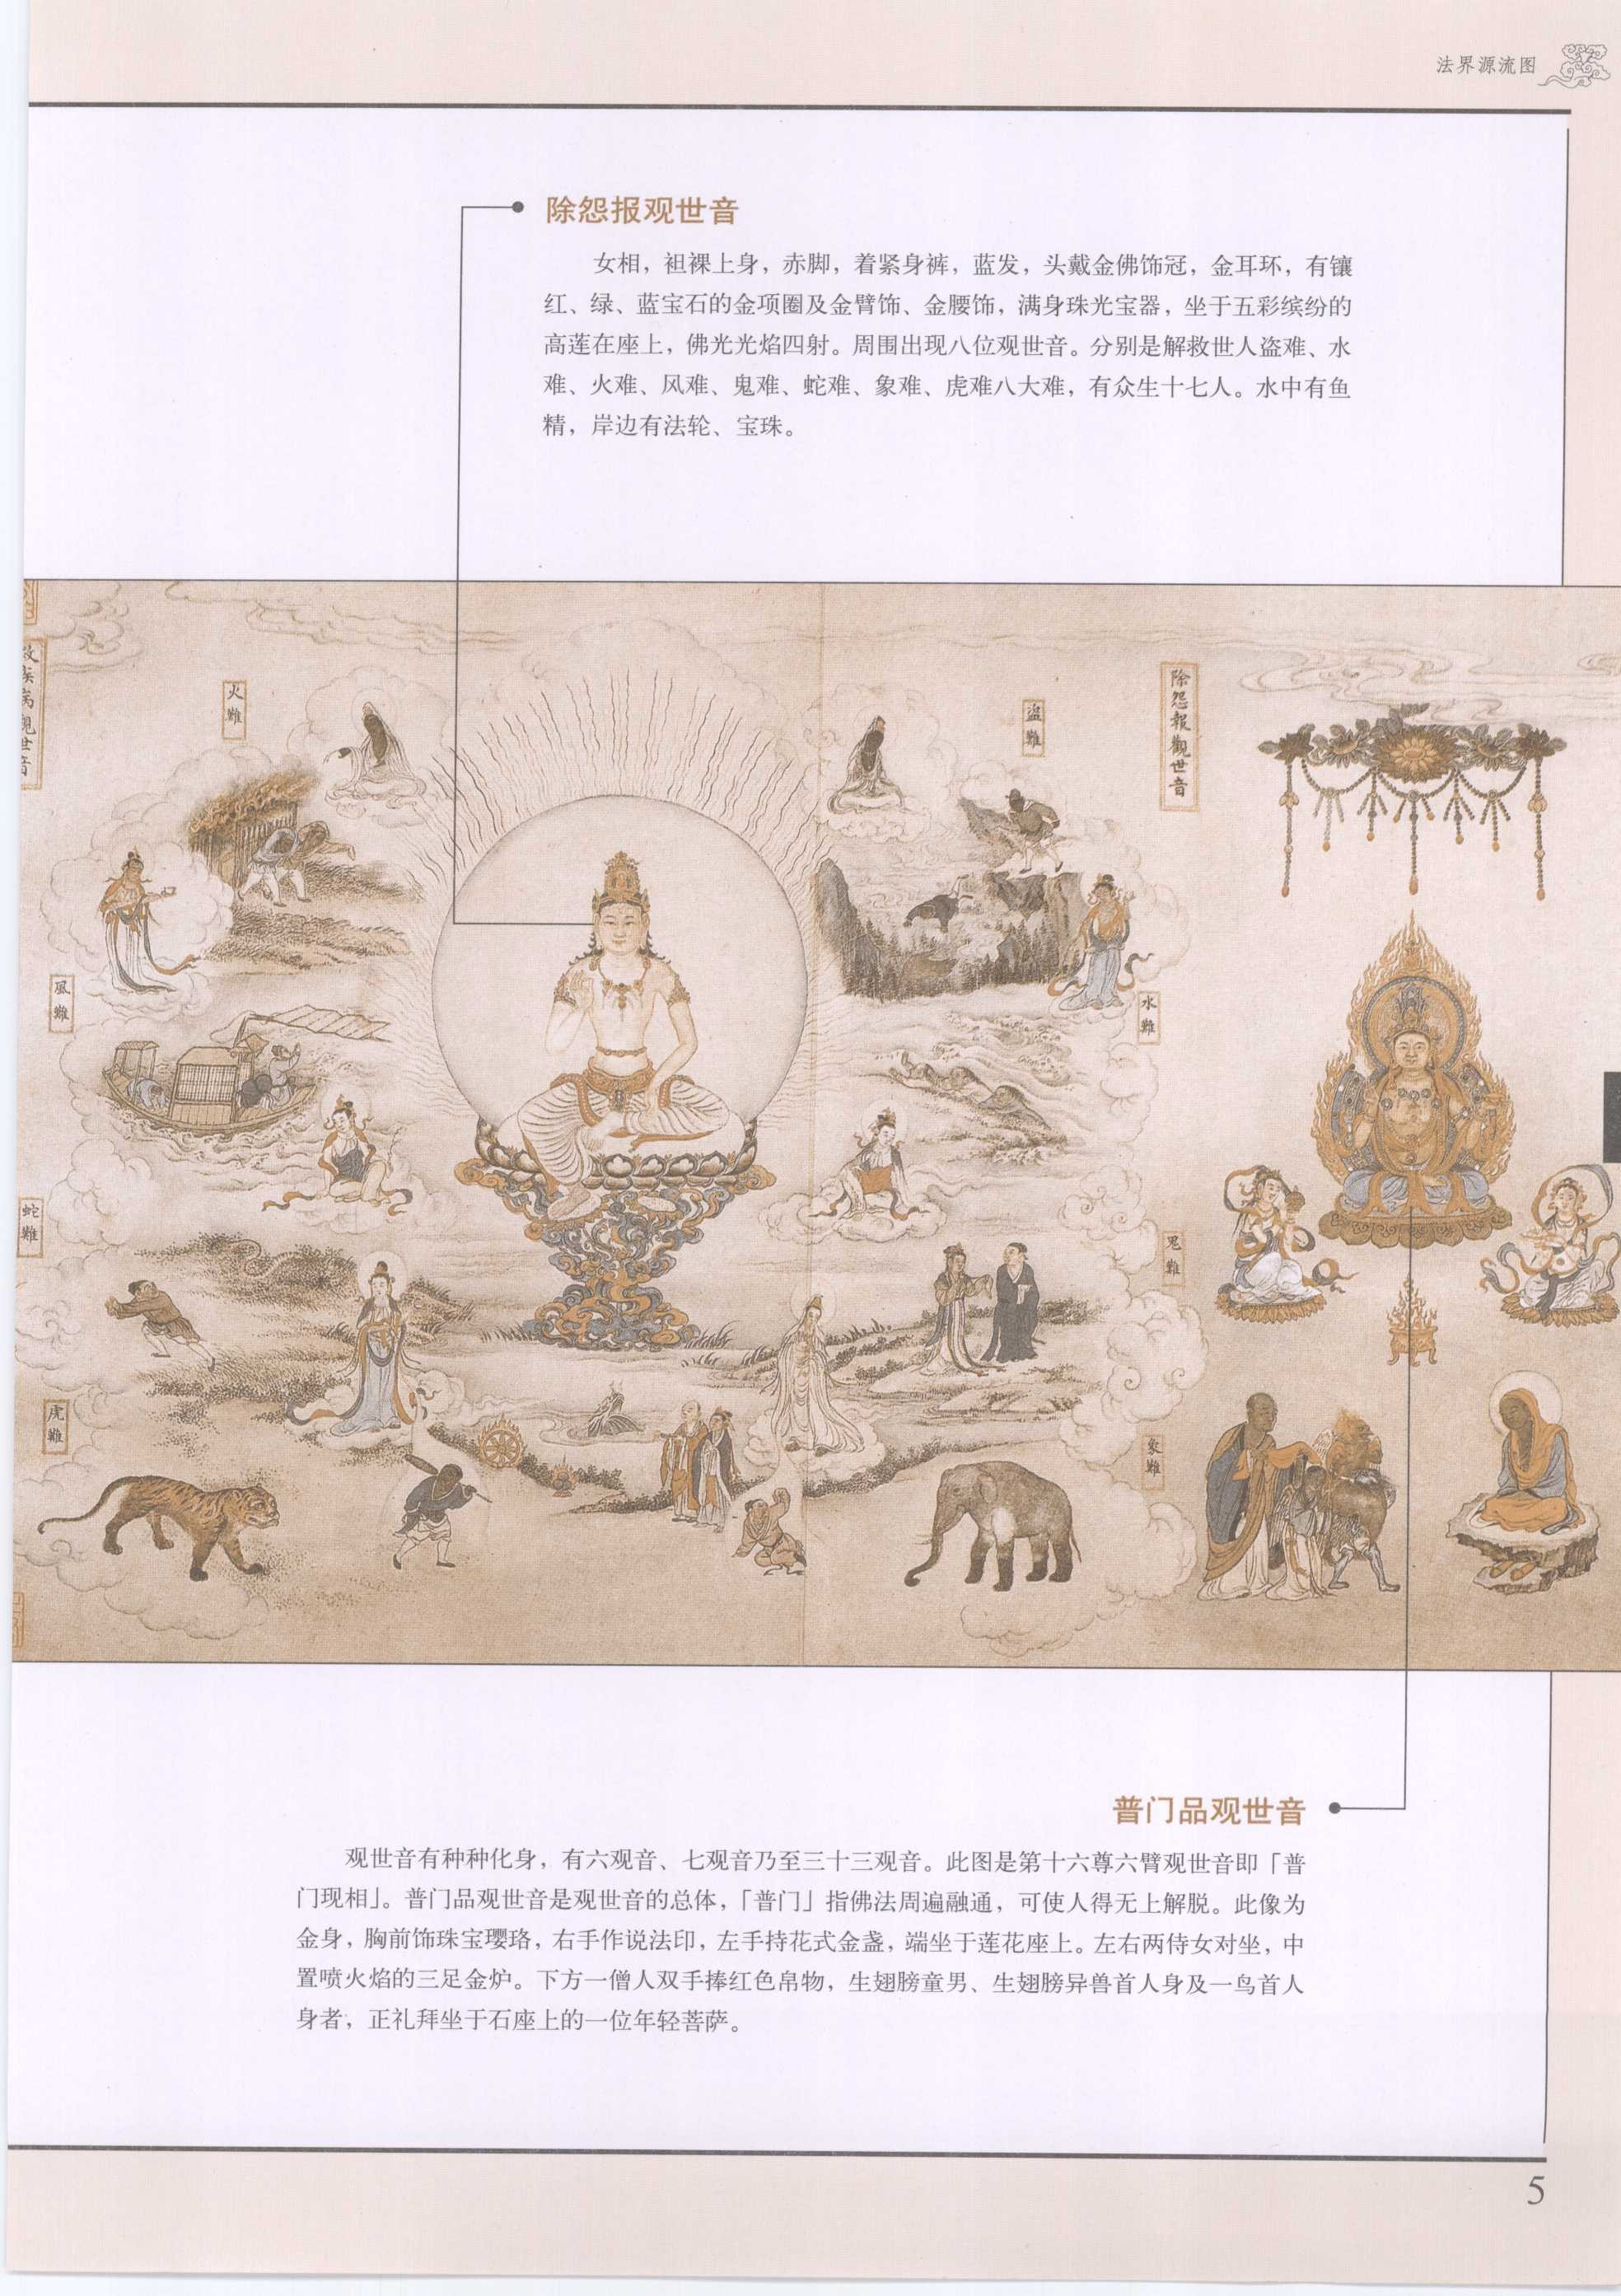 法界源流图
除怨报观世音
女相，袒裸上身，赤脚，着紧身裤，蓝发，头戴金佛饰冠，金耳环，有镶
红、绿、蓝宝石的金项圈及金臂饰、金腰饰，满身珠光宝器，坐于五彩缤纷的
高莲在座上，佛光光焰四射。周围出现八位观世音。分别是解救世人盗难、水
难、火难、风难、鬼难、蛇难、象难、虎难八大难，有众生十七人。水中有鱼
精，岸边有法轮、宝珠。
除怨報觀世音
盗難
水難
鬼難
象難
火難
風難
蛇難
虎難
救疾病觀世音
普门品观世音
观世音有种种化身，有六观音、七观音乃至三十三观音。此图是第十六尊六臂观世音即「普
门现相」。普门品观世音是观世音的总体，「普门」指佛法周遍融通，可使人得无上解脱。此像为
金身，胸前饰珠宝璎珞，右手作说法印，左手持花式金盏，端坐于莲花座上。左右两侍女对坐，中
置喷火焰的三足金炉。下方一僧人双手捧红色帛物，生翅膀童男、生翅膀异兽首人身及一鸟首人
身者，正礼拜坐于石座上的一位年轻菩萨。
5